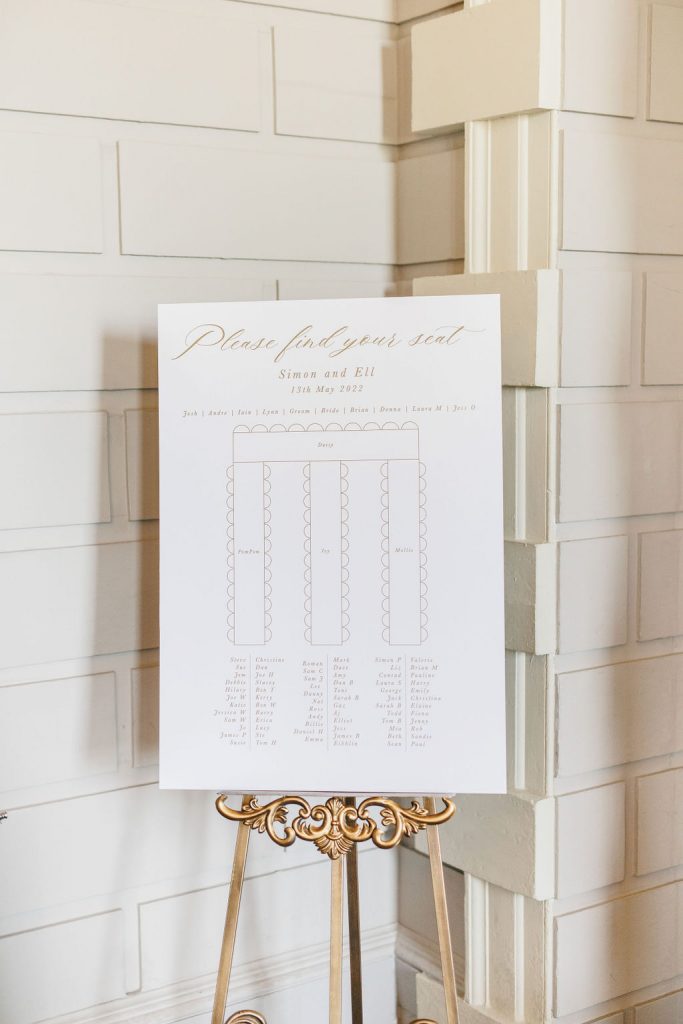 Please find your seat
Simon and Ell
13th May 2022
Josh | Andre | Iain | Lynn | Groom | Bride | Brian | Donna | Laura M | Jess O
Darcy
PomPom Ivy Mollie
Steve Christine
Sue Dan
Jem Joe H
Debbie Stacey
Hilary Ben T
Joe W Kerry
Katie Ben W
Jessica W Barry
Sam W Erica
Jo Lucy
James P Ste
Susie Tom H
Roman Mark
Sam C Dave
Sam J Amy
Lei Dan B
Danny Toni
Nat Sarah B
Ross Gaz
Andy Aj
Billie Elliot
Daniel H Jess
Emma James B
Eibhlin
Simon P Valerie
Liz Brian M
Conrad Pauline
Laura S Harry
George Emily
Jack Christina
Sarah B Elaine
Todd Fiona
Tom B Jenny
Mia Rob
Beth Sandie
Sean Paul